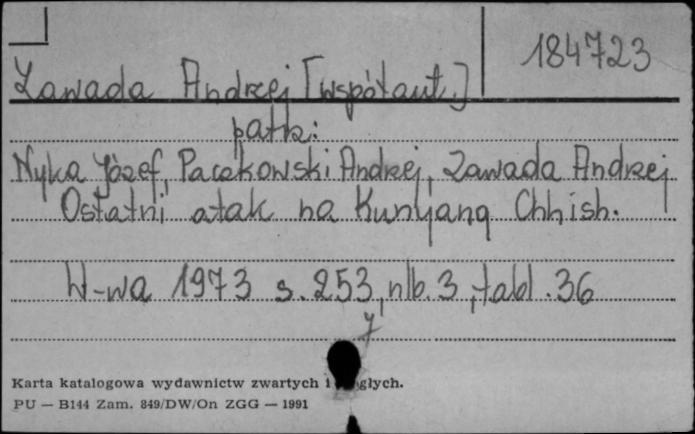 184723
Zawada Andrzej [współaut.]
patrz:
Nyka Józef, Paczkowski Andrzej, Zawada Andrzej
Ostatni atak na Kunyang Chhish.
W-wa 1973 s. 253, nlb. 3, tabl. 36
Karta katalogowa wydawnictw zwartych i
PU — B144 Zam. 849/DW/On ZGG — 1991